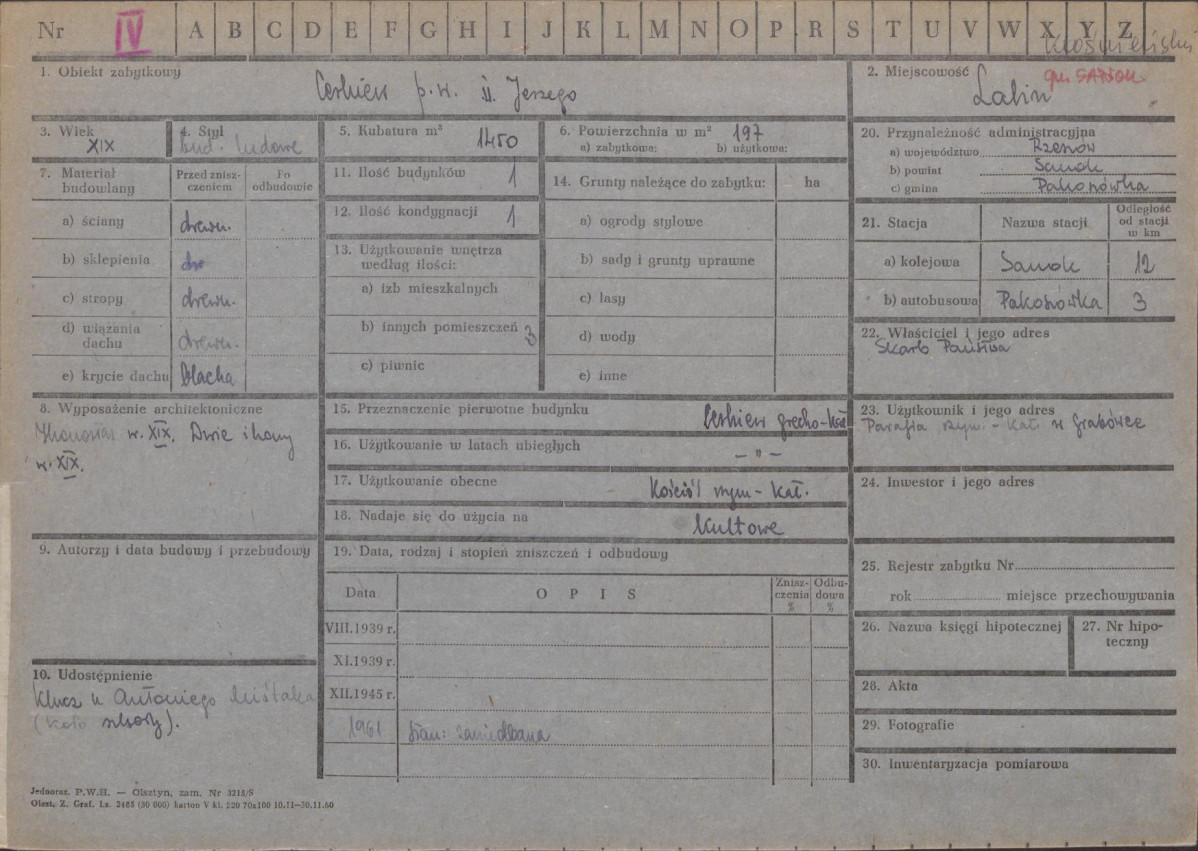 Nr IV A B C D E F G H I J K L M N O P R S T U V W X Y Z
1. Obiekt zabytkowy
Cerkiew p.w. św. Jerzego
2. Miejscowość
gm. SANOK
Łalin
3. Wiek
XIX
4. Styl
bud. ludowe
5. Kubatura m³ 1450
6. Powierzchnia w m² 197
a) zabytkowa: b) użytkowa:
7. Materiał budowlany
Przed znisz-
czeniem
Po
odbudowie
a) ściany drewn.
b) sklepienia dre
c) stropy drewn.
d) wiązania
dachu drewn.
e) krycie dachu blacha
8. Wyposażenie architektoniczne
Ikonostas w. XIX. Dwie ikony
w. XIX.
9. Autorzy i data budowy i przebudowy
10. Udostępnienie
Klucz u Antoniego
(koło szkoły).
11. Ilość budynków 1
12. Ilość kondygnacji 1
13. Użytkowanie wnętrza
według ilości:
a) izb mieszkalnych
b) innych pomieszczeń 3
c) piwnic
14. Grunty należące do zabytku: ha
a) ogrody stylowe
b) sady i grunty uprawne
c) lasy
d) wody
e) inne
15. Przeznaczenie pierwotne budynku Cerkiew grecko-kat
16. Użytkowanie w latach ubiegłych – " –
17. Użytkowanie obecne Kościół rzym-kat.
18. Nadaje się do użycia na kultowe
19. Data, rodzaj i stopień zniszczeń i odbudowy
Data OPIS
Znisz-
czenia
%
Odbu-
dowa
%
VIII.1939 r.
XI.1939 r.
XII.1945 r.
1961 stan: zaniedbana
20. Przynależność administracyjna
a) województwo Rzeszów
b) powiat Sanok
c) gmina Pakoszówka
21. Stacja Nazwa stacji
Odległość
od stacji
w km
a) kolejowa Sanok 12
b) autobusowa Pakoszówka 3
22. Właściciel i jego adres
Skarb Państwa
23. Użytkownik i jego adres
Parafia rzym.-kat. w Grabówce
24. Inwestor i jego adres
25. Rejestr zabytku Nr
rok miejsce przechowywania
26. Nazwa księgi hipotecznej
27. Nr hipo-
teczny
28. Akta
29. Fotografie
30. Inwentaryzacja pomiarowa
Jednoraz. P.W.H. — Olsztyn, zam. Nr 3218/S
Olszt. Z. Graf. Lz. 2485 (30 000) karton V kl. 220 70x100 10.11—30.11.60